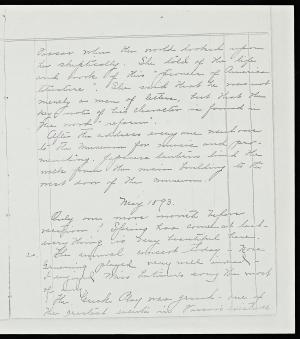 Vassar when the world looked upon
her skeptically. She told of the life
and work of this "pioneer of American
literature". She said that he was not
merely a man of letters, but that the
key note of his character is found in
the word "reform".
After the address everyone went over
to the Museum for music and pro-
menading. Japanese lanterns lined the
walk from the main building to the
west door of the museum.
May 1893.
Only one more month before
vacation! Spring has come at last -
everything is very beautiful here.
The annual concert today - Miss
played very well indeed -
and Miss sang the most
of any.
The Greek Play was grand - one of
the greatest events in Vassar's history